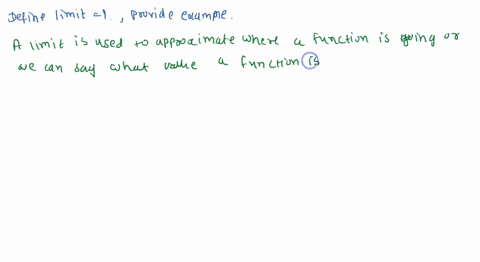 Define limit =1. , provide example.
A limit is used to approximate where a function is going or
we can say what value a function is